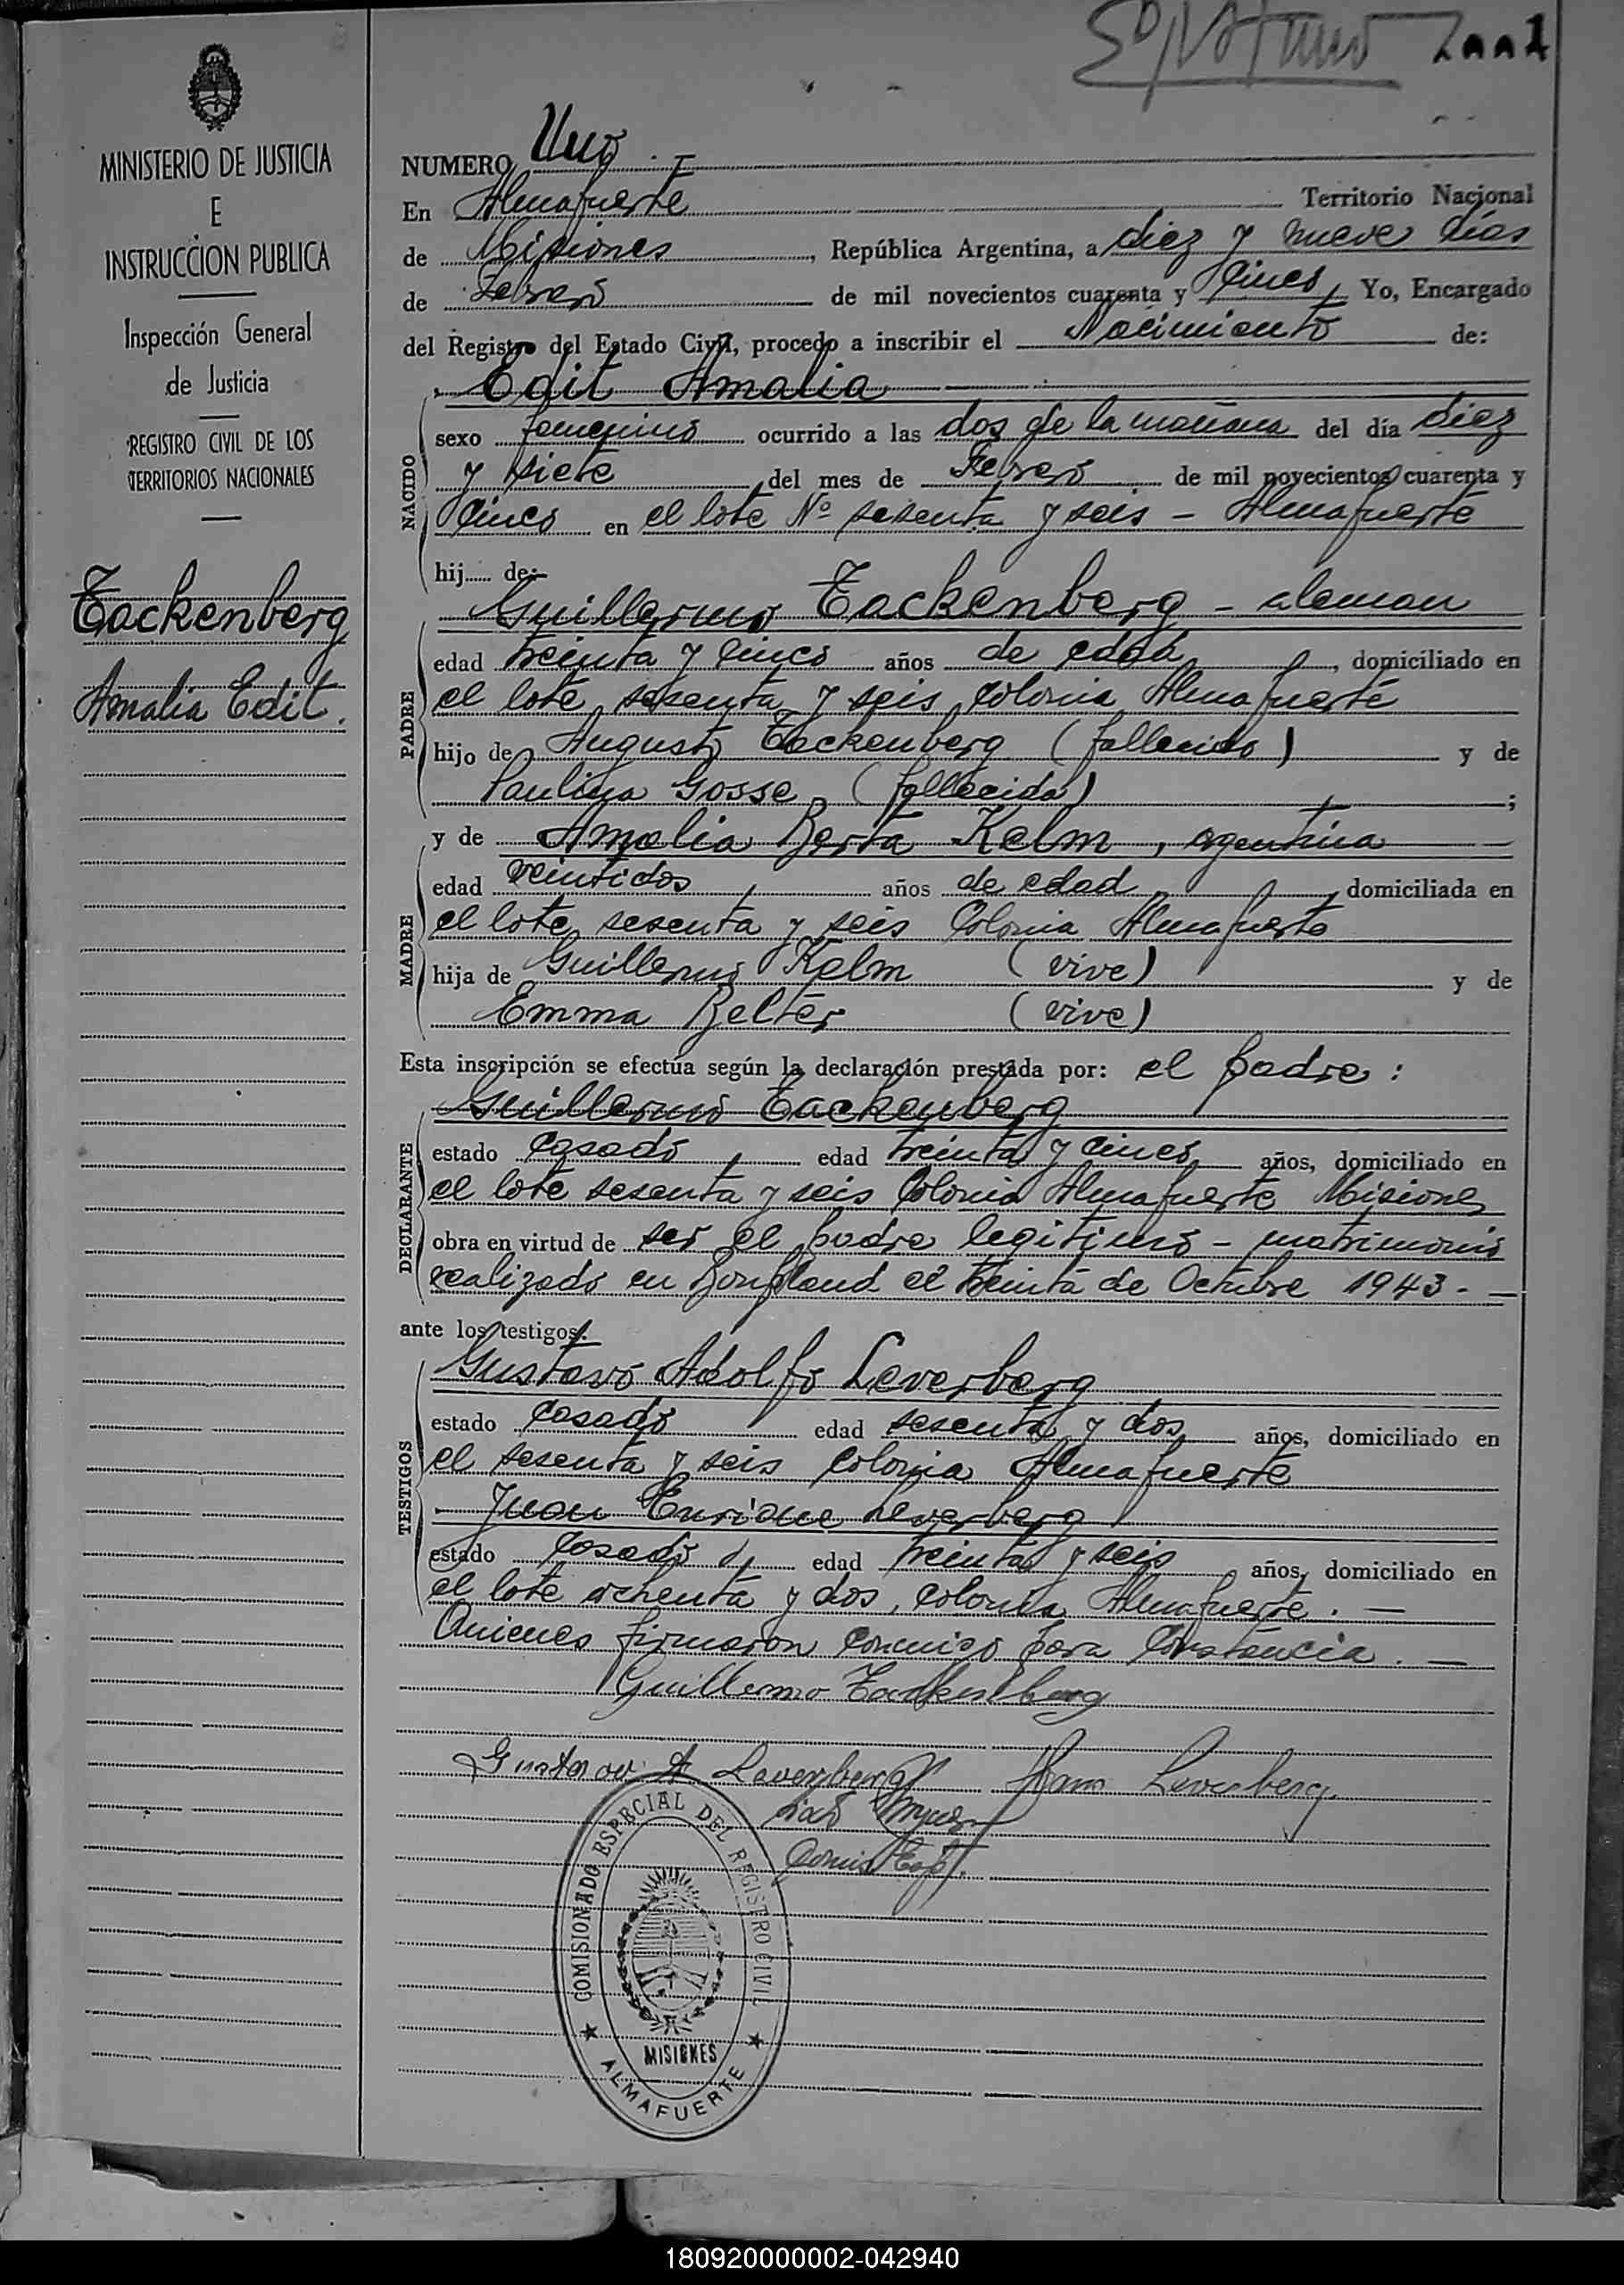 MINISTERIO DE JUSTICIA
E
INSTRUCCION PUBLICA
Inspección General
de Justicia
REGISTRO CIVIL DE LOS
TERRITORIOS NACIONALES
Tackenberg
Amalia Edit.
NUMERO Uno
En Almafuerte Territorio Nacional
de Misiones, República Argentina, a diez y nueve días
de Febrero de mil novecientos cuarenta y cinco, Yo, Encargado
del Registro del Estado Civil, procedo a inscribir el Nacimiento de:
Edit Amalia
NACIDO
sexo femenino ocurrido a las dos de la mañana del día diez
y siete del mes de Febrero de mil novecientos cuarenta y
cinco en el lote Nº sesenta y seis - Almafuerte
hij...... de:
PADRE
Guillermo Tackenberg - aleman
edad treinta y cinco años de edad, domiciliado en
el lote sesenta y seis Colonia Almafuerte
hijo de Augusto Tackenberg (fallecido) y de
Paulina Gosse (fallecida) ;
y de Amalia Berta Kelm, argentina
MADRE
edad veintidos, años de edad, domiciliada en
el lote sesenta y seis Colonia Almafuerte
hija de Guillermo Kelm (vive) y de
Emma Belter (vive)
Esta inscripción se efectúa según la declaración prestada por: el padre:
Guillermo Tackenberg
DECLARANTE
estado casado, edad treinta y cinco años, domiciliado en
el lote sesenta y seis Colonia Almafuerte Misiones
obra en virtud de ser el padre legitimo - matrimonio
realizado en Bonpland el treinta de Octubre 1943. -
ante los testigos:
TESTIGOS
Gustavo Adolfo Leverberg
estado casado edad sesenta y dos años, domiciliado en
el sesenta y seis colonia Almafuerte
Juan Enrique Leverberg
estado casado, edad treinta y seis años, domiciliado en
el lote ochenta y dos, colonia Almafuerte. -
Quienes firmaron conmigo para constancia. -
Guillermo Tackenberg
Gustav A Leverberg Hans Leverberg.
Comis Esp.
COMISIONADO ESPECIAL DEL REGISTRO CIVIL
MISIONES
ALMAFUERTE
180920000002-042940